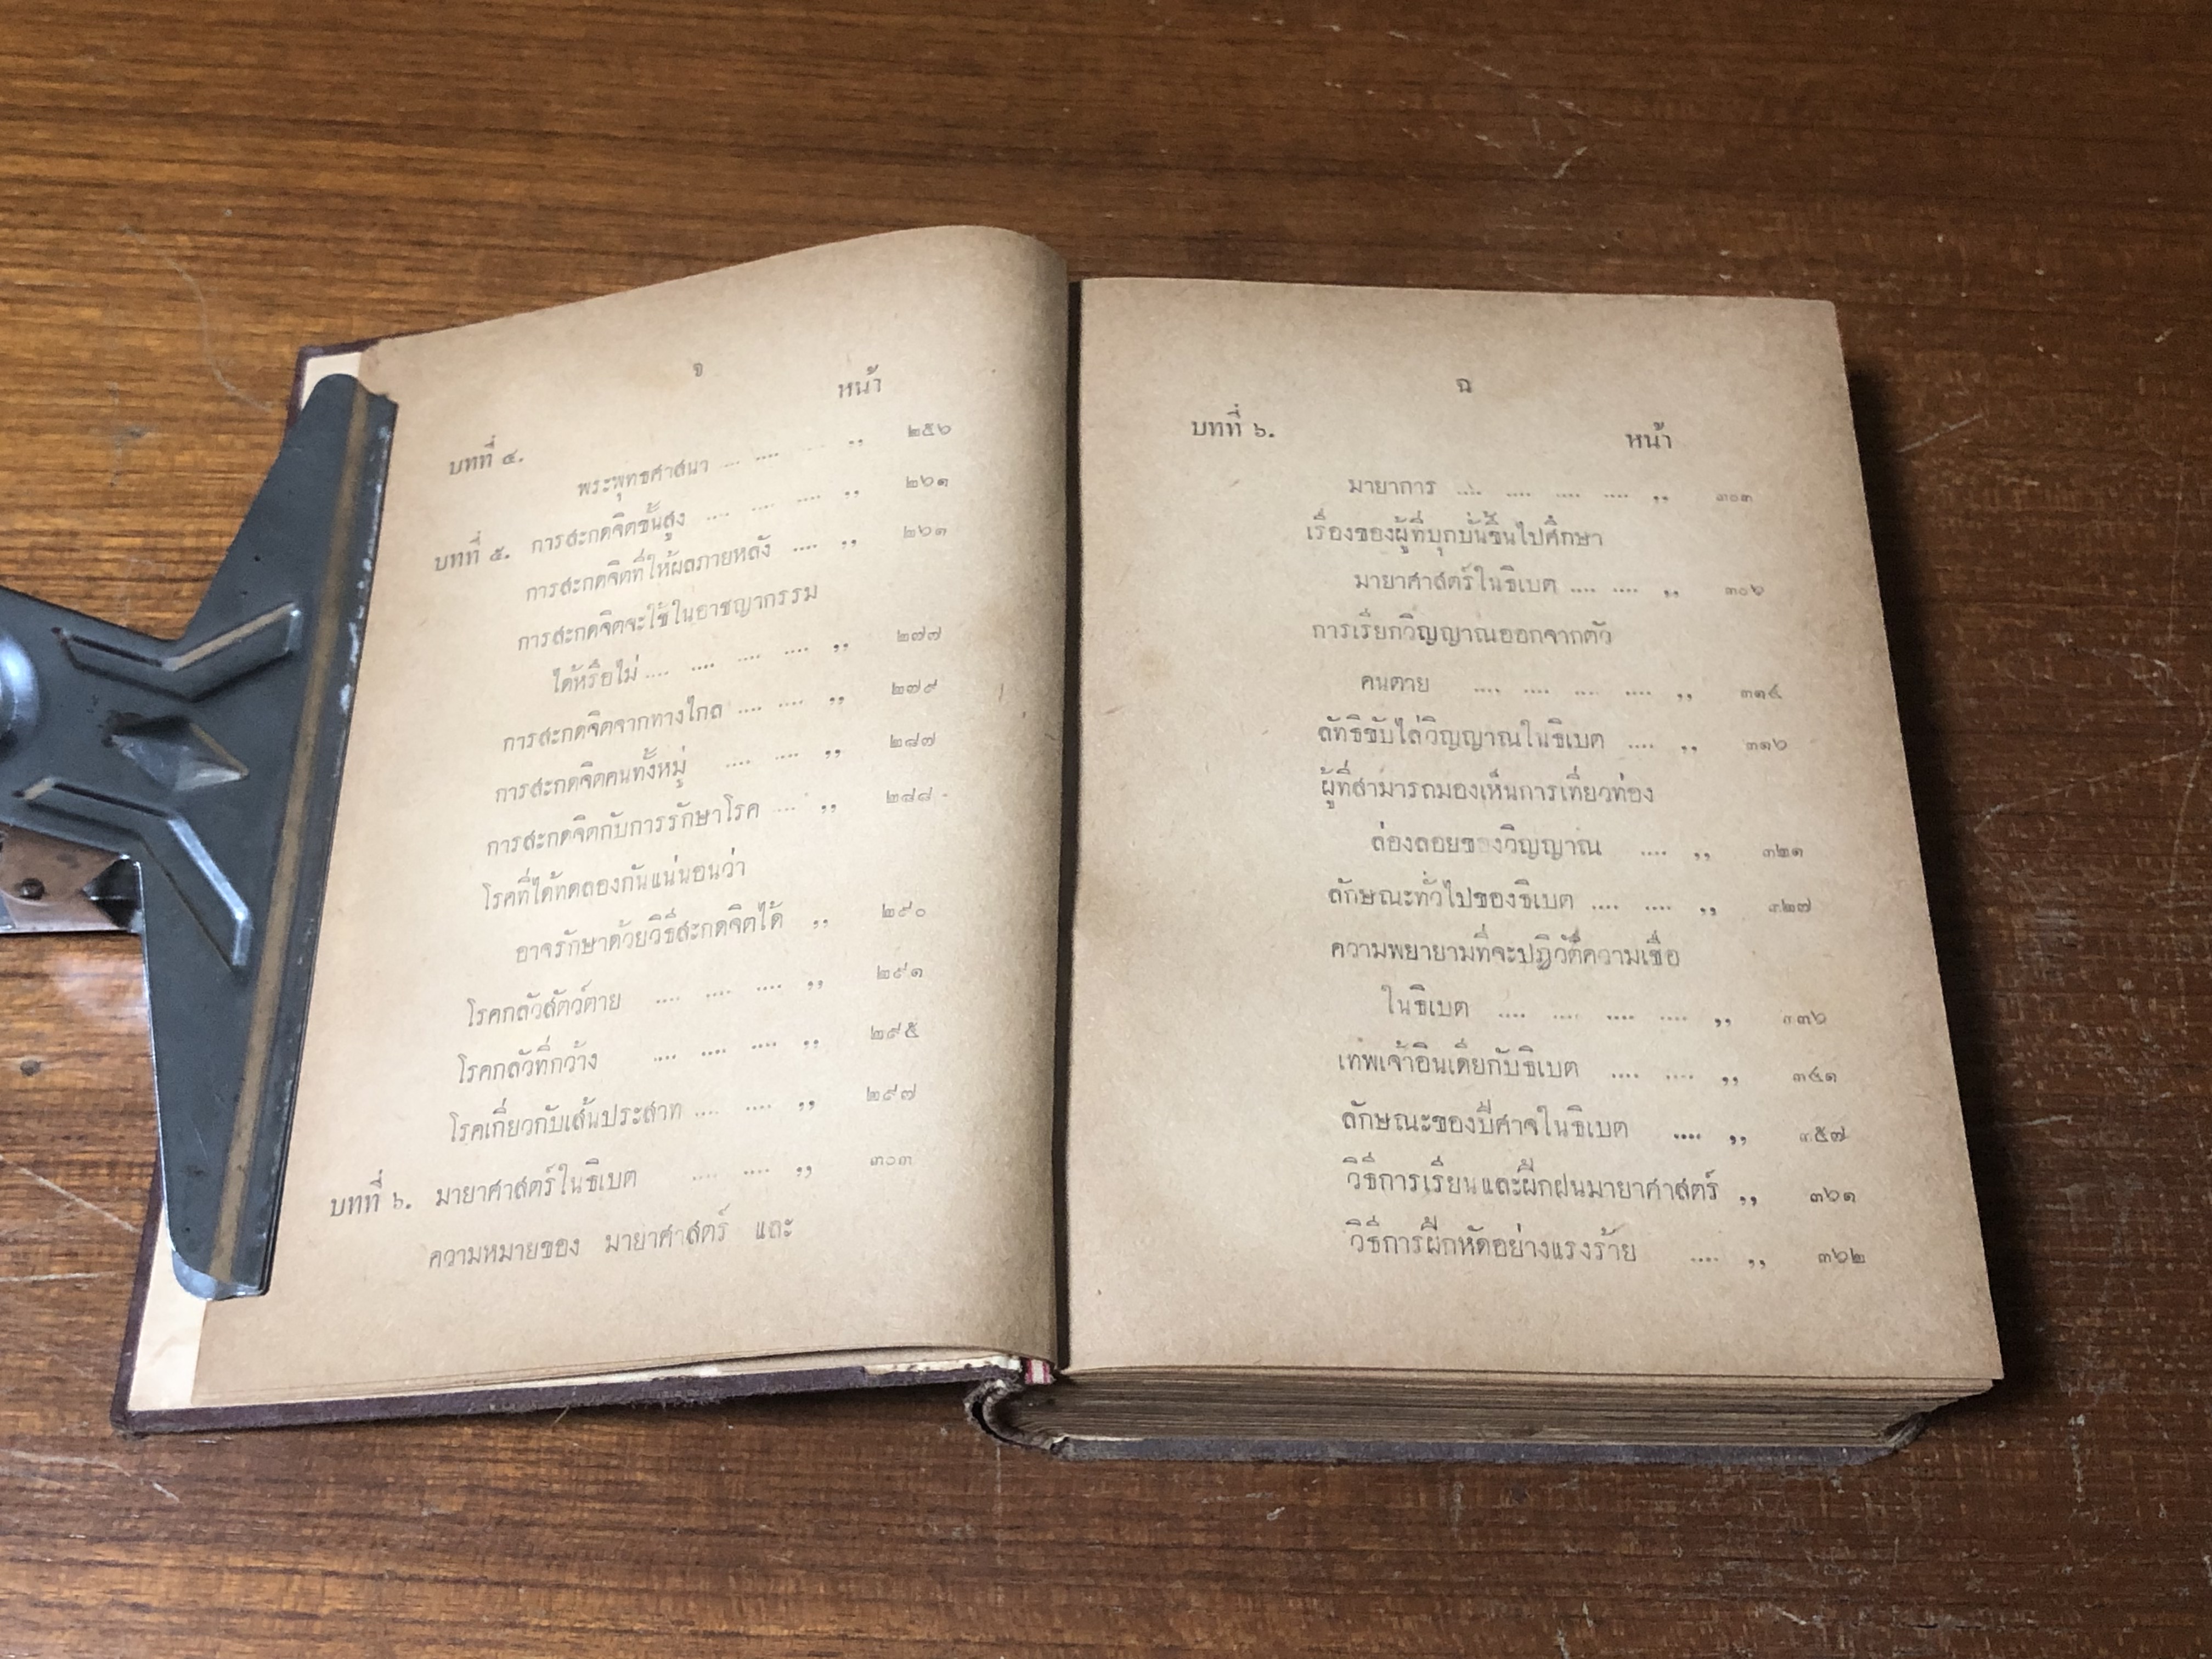 จ
หน้า
บทที่ ๔.
พระพุทธศาสนา .... .... .... ,, ๒๕๖
บทที่ ๕. การสะกดจิตขั้นสูง .... .... .... ,, ๒๖๑
การสะกดจิตที่ให้ผลภายหลัง .... ,, ๒๖๓
การสะกดจิตจะใช้ในอาชญากรรม
ได้หรือไม่ .... .... .... .... ,, ๒๗๗
การสะกดจิตจากทางไกล .... .... ,, ๒๗๙
การสะกดจิตคนทั้งหมู่ .... .... ,, ๒๘๗
การสะกดจิตกับการรักษาโรค .... ,, ๒๘๘
โรคที่ได้ทดลองกันแน่นอนว่า
อาจรักษาด้วยวิธีสะกดจิตได้ ,, ๒๙๐
โรคกลัวสัตว์ตาย .... .... .... ,, ๒๙๑
โรคกลัวที่กว้าง .... .... .... ,, ๒๙๕
โรคเกี่ยวกับเส้นประสาท .... .... ,, ๒๙๗
บทที่ ๖. มายาศาสตร์ในธิเบต .... .... ,, ๓๐๓
ความหมายของ มายาศาสตร์ และ
ฉ
บทที่ ๖.
หน้า
มายาการ .... .... .... .... ,, ๓๐๓
เรื่องของผู้ที่บุกบั่นขึ้นไปศึกษา
มายาศาสตร์ในธิเบต .... .... ,, ๓๐๖
การเรียกวิญญาณออกจากตัว
คนตาย .... .... .... .... ,, ๓๑๔
ลัทธิขับไล่วิญญาณในธิเบต .... ,, ๓๑๖
ผู้ที่สามารถมองเห็นการเที่ยวท่อง
ล่องลอยของวิญญาณ .... ,, ๓๒๑
ลักษณะทั่วไปของธิเบต .... .... ,, ๓๒๗
ความพยายามที่จะปฏิวัติความเชื่อ
ในธิเบต .... .... .... .... ,, ๓๓๖
เทพเจ้าอินเดียกับธิเบต .... .... ,, ๓๔๑
ลักษณะของปีศาจในธิเบต .... ,, ๓๕๗
วิธีการเรียนและฝึกฝนมายาศาสตร์ ,, ๓๖๑
วิธีการฝึกหัดอย่างแรงร้าย .... ,, ๓๖๒